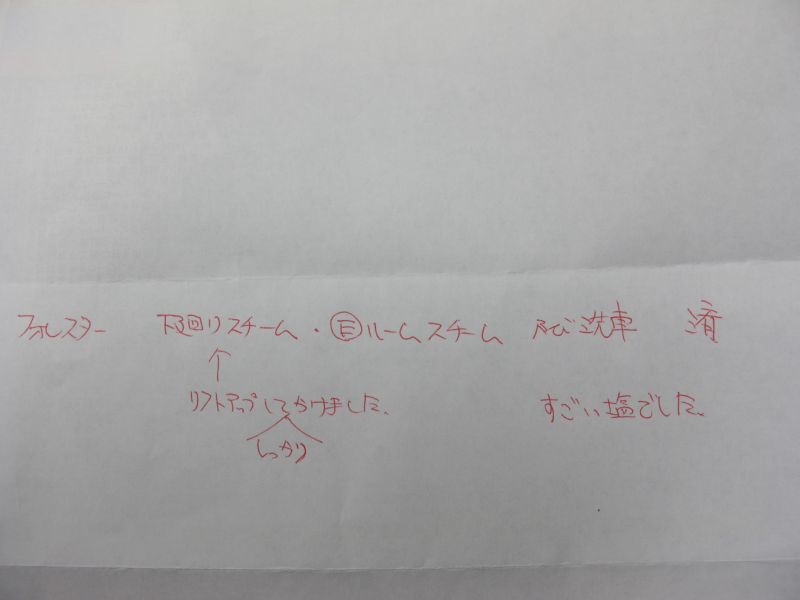 フォレスター 下廻りスチーム・Ⓔルームスチーム 及び洗車 済
↑
リフトアップしてかけました。 すごい塩でした。
しっかり